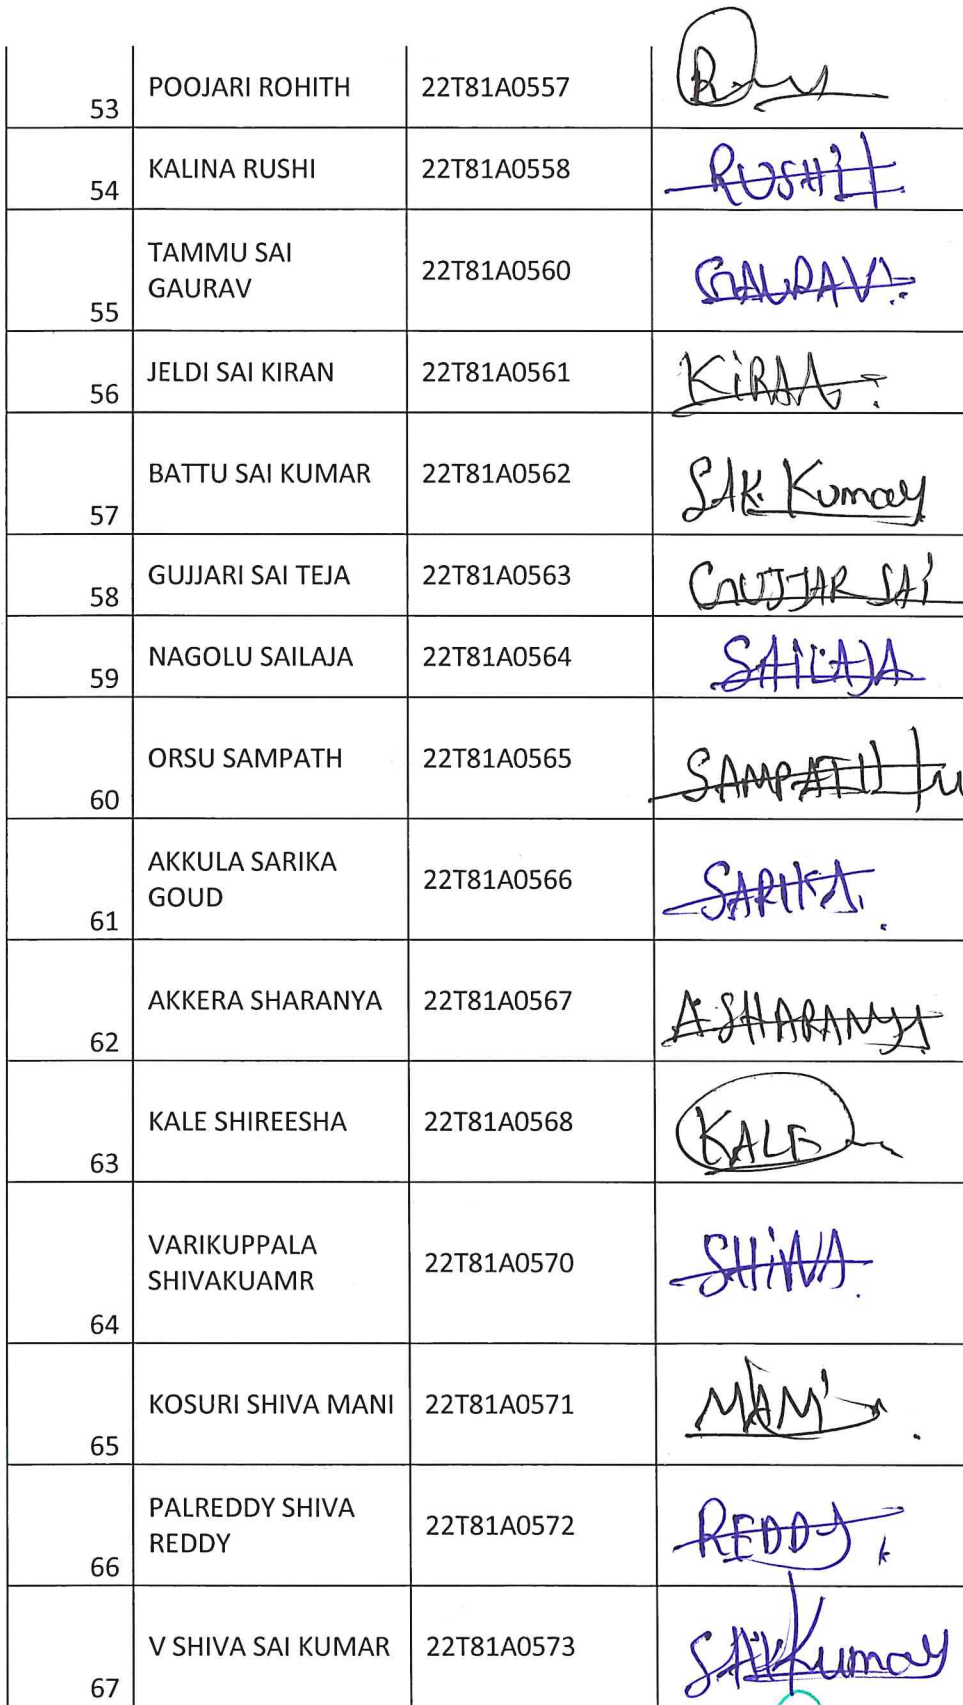 53 POOJARI ROHITH 22T81A0557
54 KALINA RUSHI 22T81A0558 RUSHI
55 TAMMU SAI
GAURAV 22T81A0560 GAURAV
56 JELDI SAI KIRAN 22T81A0561 KiRAN
57 BATTU SAI KUMAR 22T81A0562 Kumar
58 GUJJARI SAI TEJA 22T81A0563 GUJJAR SAi
59 NAGOLU SAILAJA 22T81A0564 SAiLAJA
60 ORSU SAMPATH 22T81A0565 SAMPATH
61 AKKULA SARIKA
GOUD 22T81A0566 SARIKA
62 AKKERA SHARANYA 22T81A0567 A SHARANYA
63 KALE SHIREESHA 22T81A0568 KALE
64 VARIKUPPALA
SHIVAKUAMR 22T81A0570 SHiVA
65 KOSURI SHIVA MANI 22T81A0571 MANi
66 PALREDDY SHIVA
REDDY 22T81A0572 REDDY
67 V SHIVA SAI KUMAR 22T81A0573 SAi Kumar